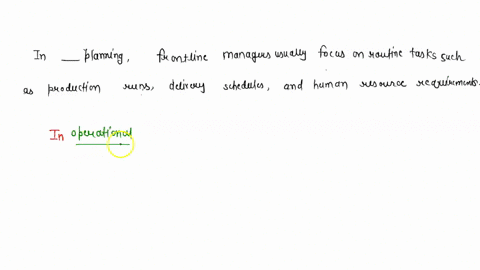 In ___ planning, frontline managers usually focus on routine tasks such
as production runs, delivery schedules, and human resource requirements.
In operational